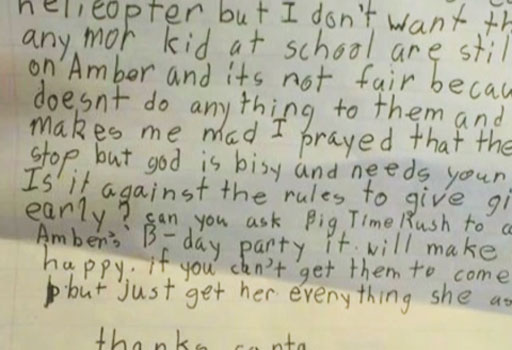 helicopter but I don't want th
any mor kid at school are stil
on Amber and its not fair becau
doesnt do any thing to them and
makes me mad I prayed that the
stop but god is bisy and needs your
Is it against the rules to give gi
early? can you ask Big Time Rush to c
Amber's B-day party it will make
happy. if you can't get them to come
but just get her everything she as
thanks santa